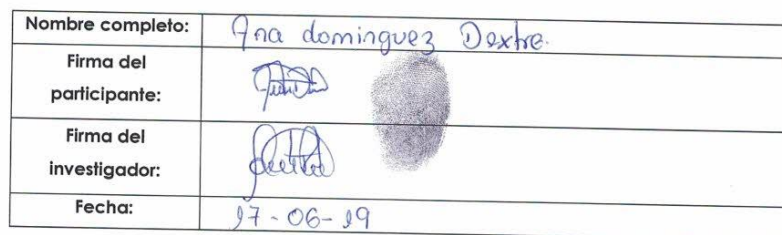 Nombre completo: Ana dominguez Dextre.
Firma del
participante:
Firma del
investigador:
Fecha: 17-06-19